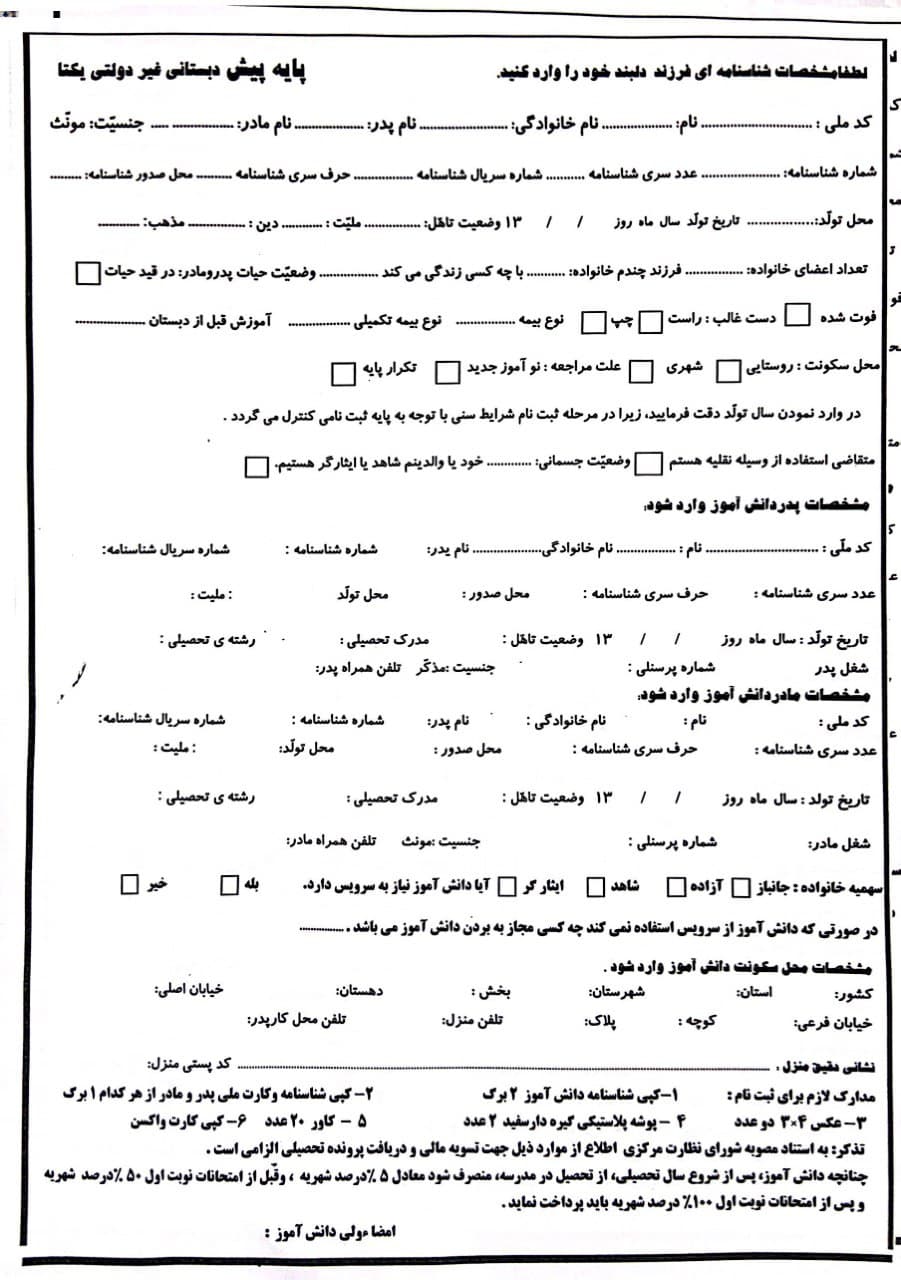 لطفامشخصات شناسنامه ای فرزند دلبند خود را وارد کنید. پایه پیش دبستانی غیر دولتی یکتا
کد ملی : .................... نام: .................. نام خانوادگی: .................... نام پدر: .................. نام مادر: .................. جنسیّت: مونّث
شماره شناسنامه: .................. عدد سری شناسنامه .......... شماره سریال شناسنامه .................. حرف سری شناسنامه .......... محل صدور شناسنامه: .........
محل تولّد:................. تاریخ تولّد سال ماه روز / / ۱۳ وضعیت تاهّل: ............... ملیّت : ........... دین : ............... مذهب: ...........
تعداد اعضای خانواده: ............... فرزند چندم خانواده: ........... با چه کسی زندگی می کند ............... وضعیّت حیات پدرومادر: در قید حیات □
فوت شده □ دست غالب : راست □ چپ □ نوع بیمه ............... نوع بیمه تکمیلی ............... آموزش قبل از دبستان ..................
محل سکونت : روستایی □ شهری □ علت مراجعه : نو آموز جدید □ تکرار پایه □
در وارد نمودن سال تولّد دقت فرمایید، زیرا در مرحله ثبت نام شرایط سنی با توجه به پایه ثبت نامی کنترل می گردد .
متقاضی استفاده از وسیله نقلیه هستم □ وضعیّت جسمانی: ............ خود یا والدینم شاهد یا ایثارگر هستیم. □
مشخصات پدردانش آموز وارد شود:
کد ملّی : .................... نام : ............... نام خانوادگی.................. نام پدر: شماره شناسنامه : شماره سریال شناسنامه:
عدد سری شناسنامه : حرف سری شناسنامه : محل صدور : محل تولّد : ملیت :
تاریخ تولّد : سال ماه روز / / ۱۳ وضعیت تاهّل : مدرک تحصیلی : رشته ی تحصیلی :
شغل پدر شماره پرسنلی : جنسیت :مذکّر تلفن همراه پدر:
مشخصات مادردانش آموز وارد شود:
کد ملی : نام : نام خانوادگی : نام پدر: شماره شناسنامه : شماره سریال شناسنامه:
عدد سری شناسنامه : حرف سری شناسنامه : محل صدور : محل تولّد: : ملیت :
تاریخ تولد : سال ماه روز / / ۱۳ وضعیت تاهّل : مدرک تحصیلی : رشته ی تحصیلی :
شغل مادر: شماره پرسنلی : جنسیت :مونث تلفن همراه مادر:
سهمیه خانواده : جانباز □ آزاده □ شاهد □ ایثار گر □ آیا دانش آموز نیاز به سرویس دارد. بله □ خیر □
در صورتی که دانش آموز از سرویس استفاده نمی کند چه کسی مجاز به بردن دانش آموز می باشد .............
مشخصات محل سکونت دانش آموز وارد شود .
کشور: استان: شهرستان: بخش : دهستان: خیابان اصلی:
خیابان فرعی: کوچه : پلاک: تلفن منزل: تلفن محل کارپدر:
نشانی دقیق منزل : .................................................. کد پستی منزل:
مدارک لازم برای ثبت نام : ۱-کپی شناسنامه دانش آموز ۲ برگ ۲- کپی شناسنامه وکارت ملی پدر و مادر از هر کدام ۱ برگ
۳- عکس ۴×۳ دو عدد ۴ - پوشه پلاستیکی گیره دارسفید ۲ عدد ۵ - کاور ۲۰ عدد ۶- کپی کارت واکسن
تذکر: به استناد مصوبه شورای نظارت مرکزی اطلاع از موارد ذیل جهت تسویه مالی و دریافت پرونده تحصیلی الزامی است .
چنانچه دانش آموز، پس از شروع سال تحصیلی، از تحصیل در مدرسه، منصرف شود معادل ۵ ٪درصد شهریه ، وقبل از امتحانات نوبت اول ۵۰ ٪درصد شهریه
و پس از امتحانات نوبت اول ۱۰۰٪ درصد شهریه باید پرداخت نماید .
امضا ءولی دانش آموز :